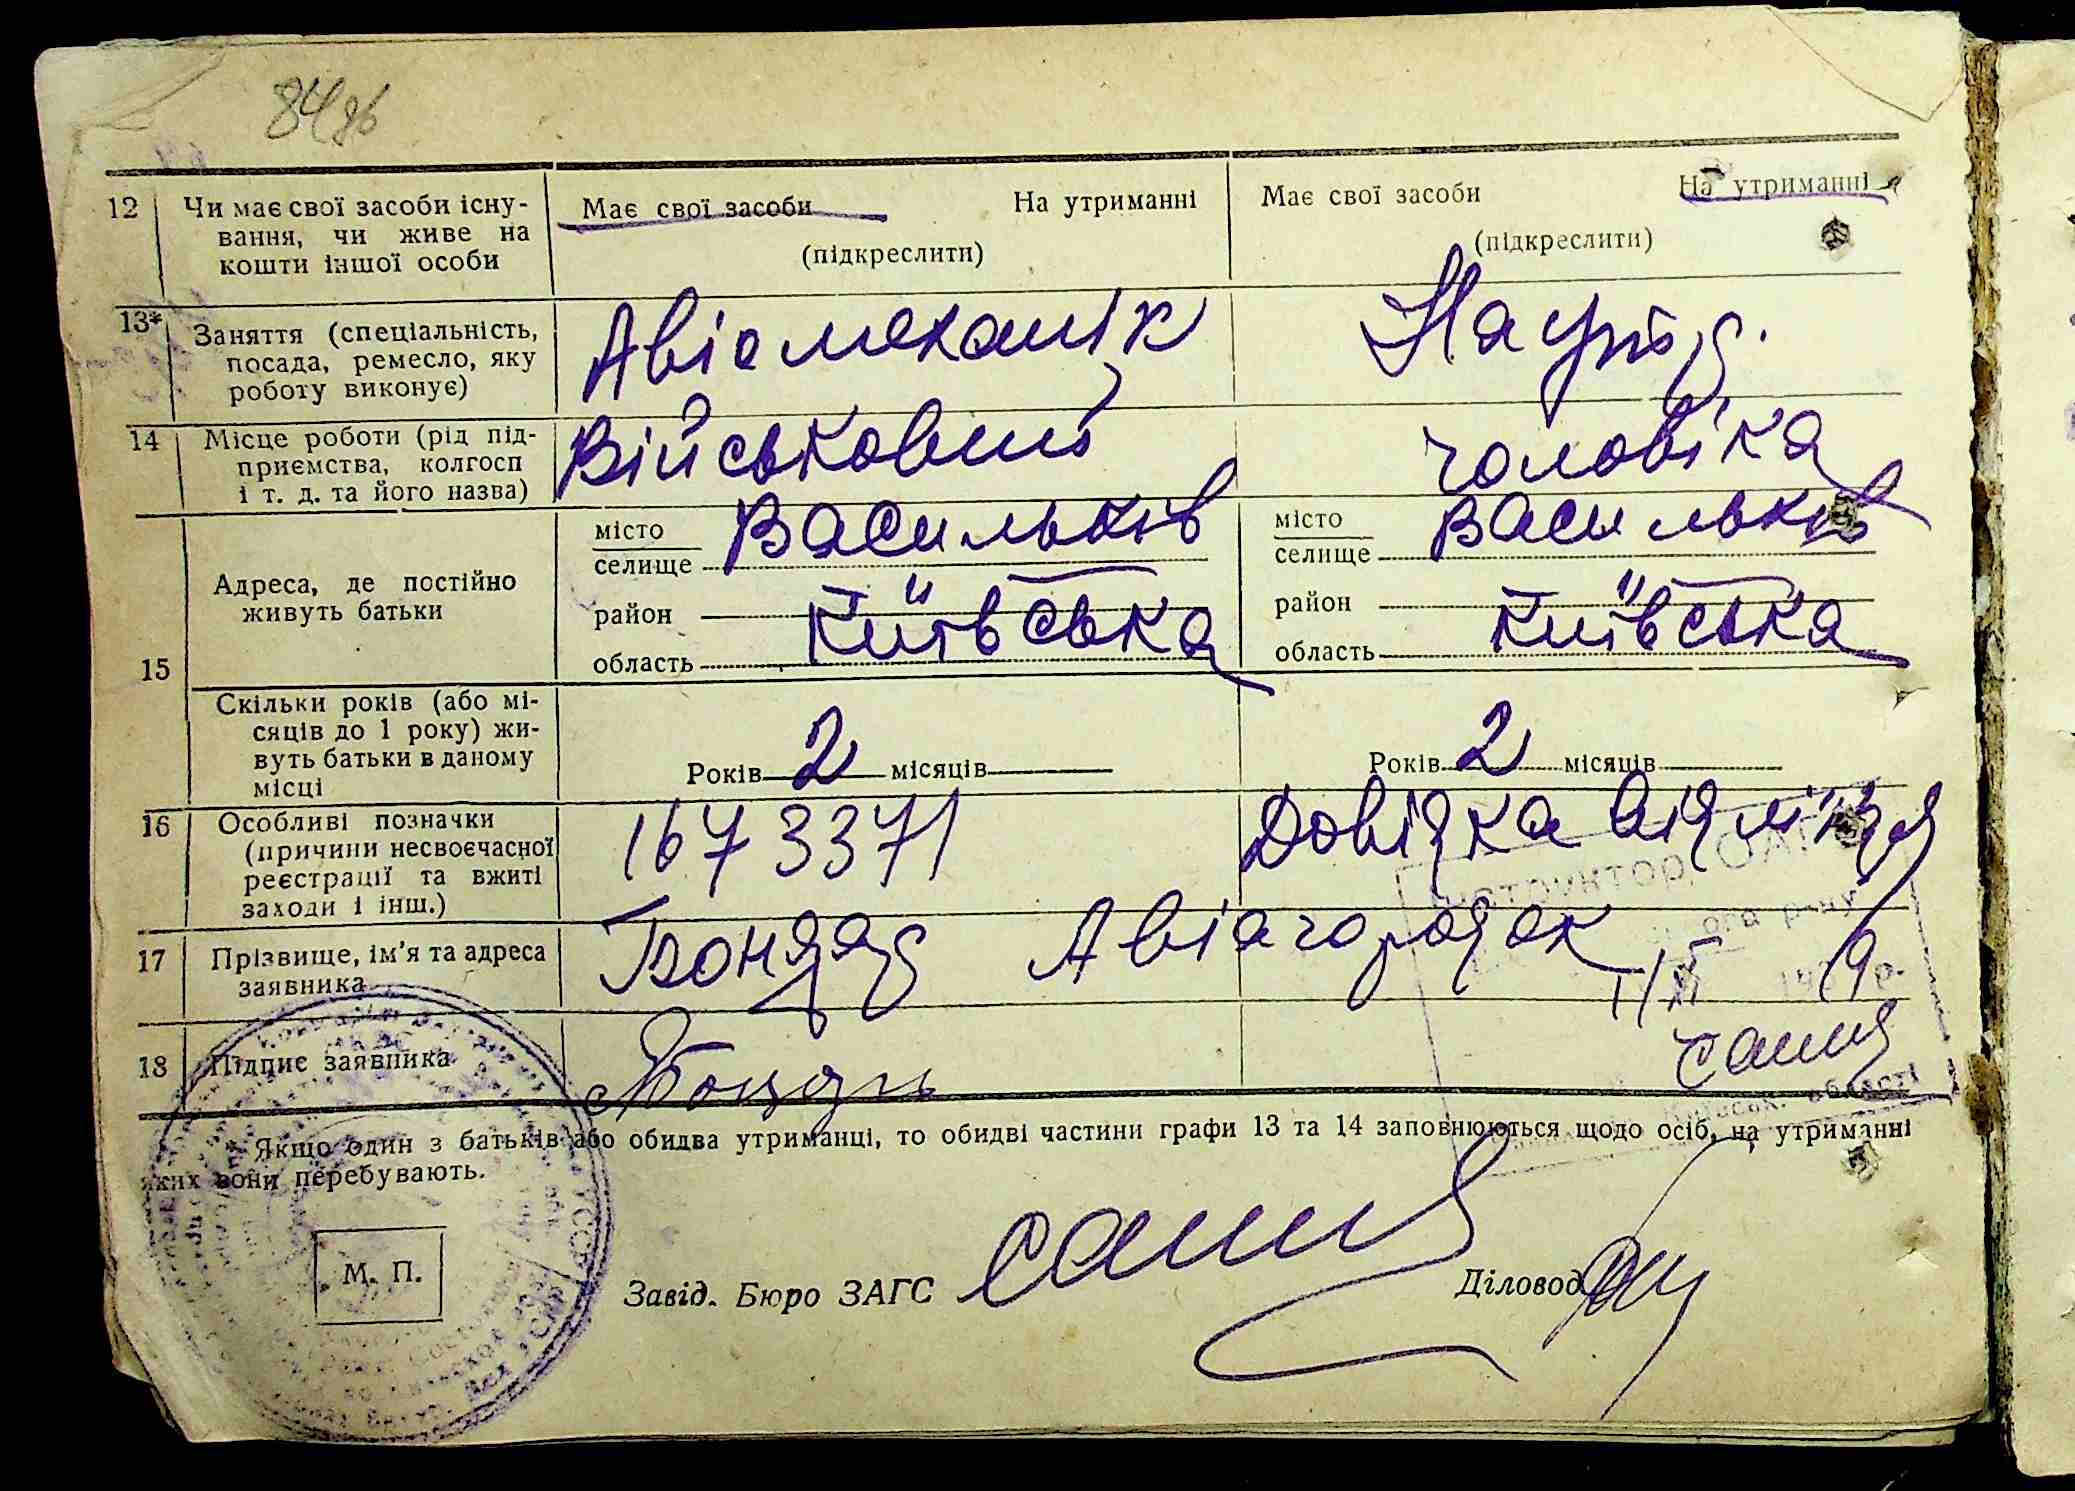 84
12 Чи має свої засоби існу- Має свої засоби На утриманні Має свої засоби На утриманні
вання, чи живе на (підкреслити) (підкреслити)
кошти іншої особи
13* Заняття (спеціальність, Авіамеханік На утр.
посада, ремесло, яку
роботу виконує)
14 Місце роботи (рід під- Військовий чоловіка
приємства, колгосп
і т. д. та його назва)
15 Адреса, де постійно
живуть батьки
місто Васильків місто Васильків
селище селище
район — " район — "
область Київська область Київська
Скільки років (або мі-
сяців до 1 року) жи-
вуть батьки в даному
місці
Років 2 місяців Років 2 місяців
16 Особливі позначки 1673371 Довідка від
(причини несвоєчасної
реєстрації та вжиті
заходи і інш.)
17 Прізвище, ім'я та адреса Бондар Авіагородок
заявника
18 Підпис заявника
* Якщо один з батьків або обидва утриманці, то обидві частини графи 13 та 14 заповнюються щодо осіб, на утриманні
яких вони перебувають.
М. П.
Завід. Бюро ЗАГС Діловод